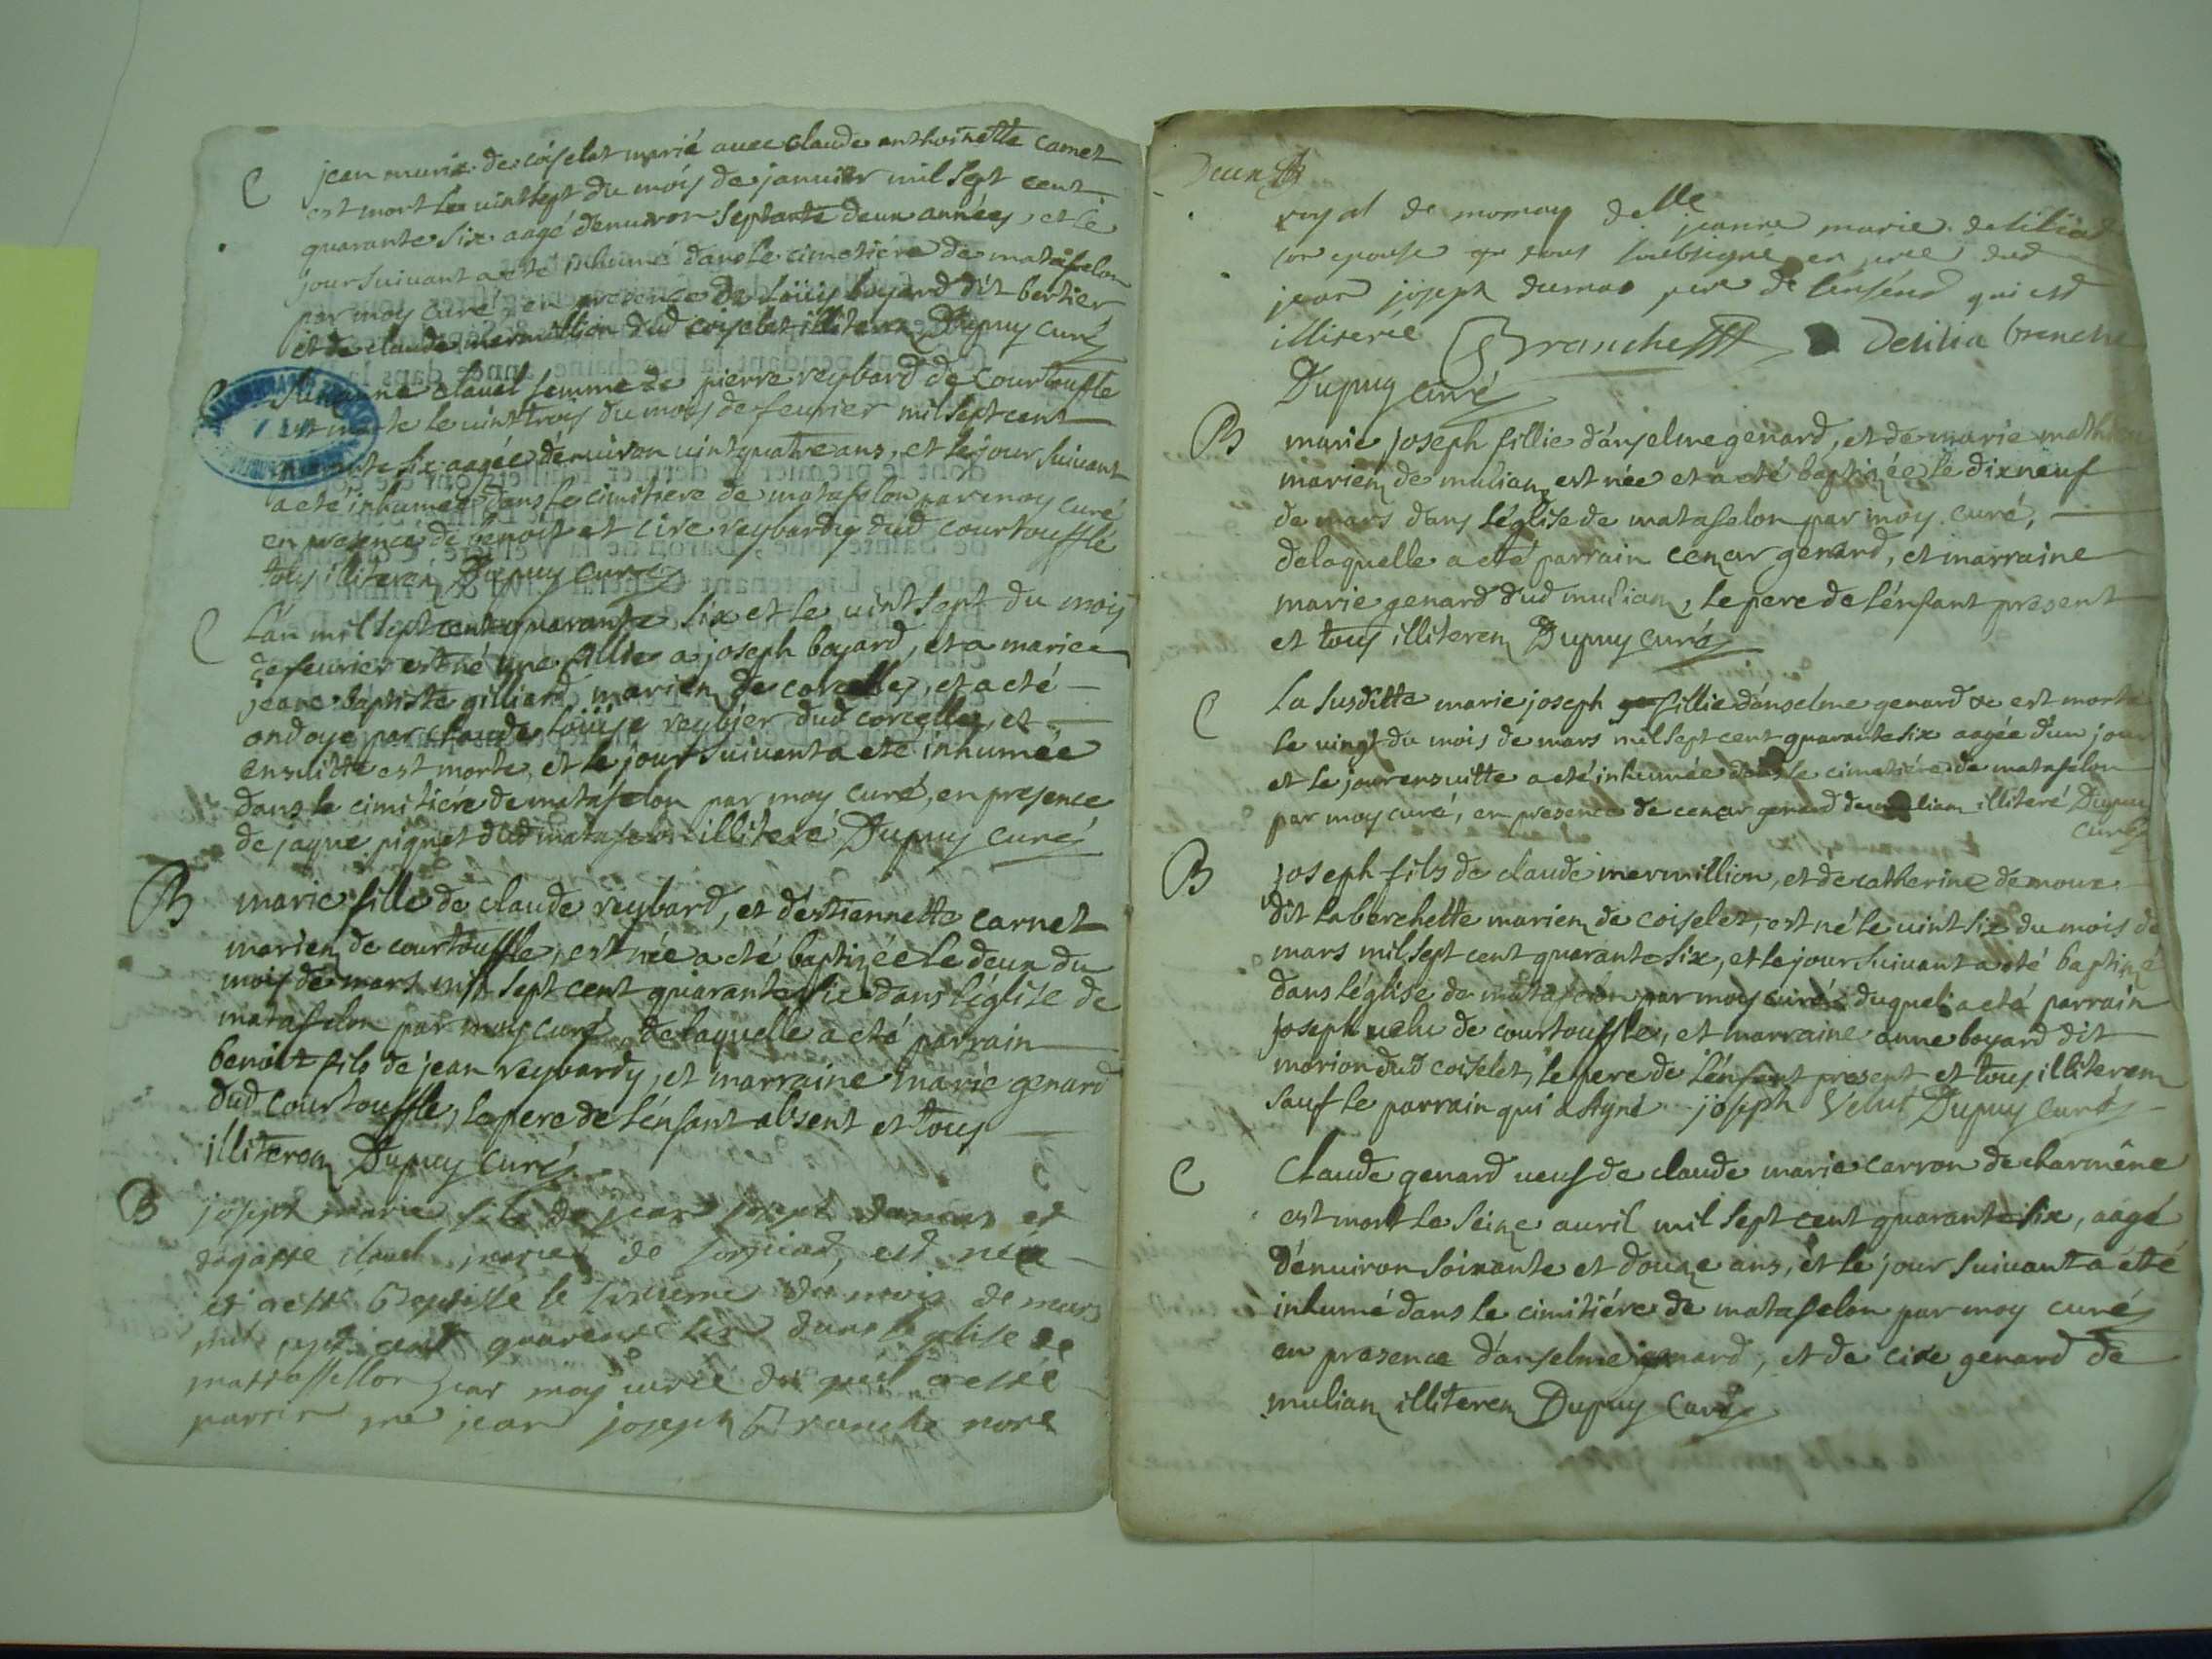 C jean marie de coiselet marié avec claude anthoinette carnet
est mort le vintsept du moiy de janvier mil sept cent
quarante six aagé d'environ septante deux années, et le
jour suivant a eté inhumé dans le cimetiére de matafelon
par moy curé, en presence de Loüiy boyard dit bertier
et de claude mermillion dud coiselet illiterez Dupuy curé
Susanne clauel femme de pierre reybard de courtouffle
est morte le vint troiy du moiy de fevrier mil sept cent
quarante six aagée d'environ vint quatre ans, et le jour suivant
a eté inhumée dans le cimitiere de matafelon par moy curé
en presence de benoit et cire reybardy dud courtouffle
touy illiterez Dupuy curé
C L'an mil sept cent quarante six et le vint sept du moiy
de fevrier est né une fillie a joseph boyard, et a marie
jeane baptiste gilliard, mariez de corcelley, et a eté
ondoye par claude Loüise reybier dud corcelley, et
ensuitte est morte, et le jour suivent a eté inhumée
dans le cimitiére de matafelon par moy curé, en presence
de jaque piquet dud matafelon illiteré Dupuy curé
B marie fille de claude reybard, et d'estiennette carnet
mariez de courtouffle, est née a eté baptizée le deux du
moiy de mars mil sept cent quarante six dans l'église de
matafelon par moy curé, de laquelle a eté parrain
benoit fils de jean reybardy, et marraine marie genard
dud courtouffle, le pere de l'énfant absent et touy
illiterez Dupuy curé
B joseph marie fils de jean joseph dumas et
dagathe clauel mariez de , est née
et a esté Baptisse le sixieme du mois de mars
mil sept cent quarente six dans leglise de
mattaffellon par moy curé du quel a esté
parrin me jean joseph Branche nore
Deux
royal de mornay delle jeanne marie delilia
son epouse qui sous soubsigné en pnce dud
jean joseph dumas pere de lenfend qui est
illiterié Branche Delilia branche
Dupuy curé
B marie joseph fillie d'anselme genard, et de marie
mariez de mulian est née et a eté baptizée le dixneuf
de mars dans l'église de matafelon par moy curé,
de laquelle a eté parrain cezar genard, et marraine
marie genard dud mulian, le pere de l'énfant present
et touy illiterez Dupuy curé
C La susditte marie joseph fillie d'anselme genard est morte
le vingt du mois de mars mil sept cent quarante six aagée d'un jour
et le jour ensuitte a eté inhumée dans le cimetiére de matafelon
par moy curé, en presence de cezar genard de mulian illiteré Dupuy
curé
B joseph fils de claude mermillion, et de catherine demoux
dit la berchette mariez de coiselet, est né le vint six du mois de
mars mil sept cent quarante six, et le jour suivant a eté baptizé
dans l'église de matafelon par moy curé duquel a eté parrain
joseph velu de courtouffle, et marraine anne boyard dit
morion dud coiselet, le pere de l'énfant present et touy illiterez
sauf le parrain qui a signé joseph Velut Dupuy curé
C Claude genard veuf de claude marie carron de charmêne
est mort le seize avril mil sept cent quarante six, aagé
d'environ soixante et douze ans, et le jour suivant a été
inhumé dans le cimitiére de matafelon par moy curé
en presence d'anselme genard, et de cire genard de
mulian illiterez Dupuy curé